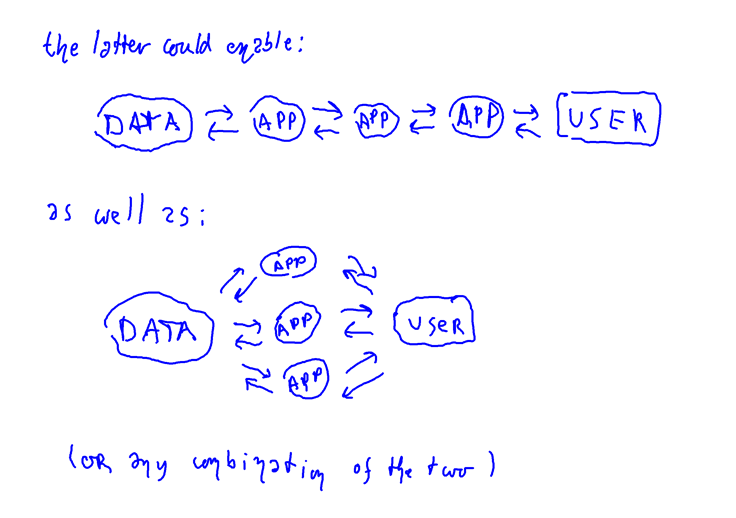 the latter could enable:
DATA APP APP APP USER
as well as:
APP
DATA APP USER
APP
(OR any combination of the two)